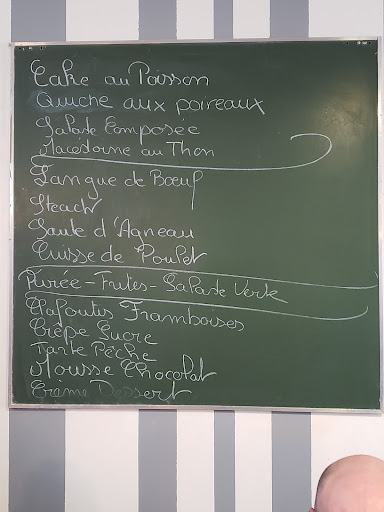 Cake au Poisson
Quiche aux poireaux
Salade Composée
Macédoine au Thon
Langue de Bœuf
Steack
Sauté d'Agneau
Cuisse de Poulet
Purée - Frites - Salade Verte
Clafoutis Framboises
Crêpe Sucre
Tarte Pêche
Mousse Chocolat
Crème Dessert